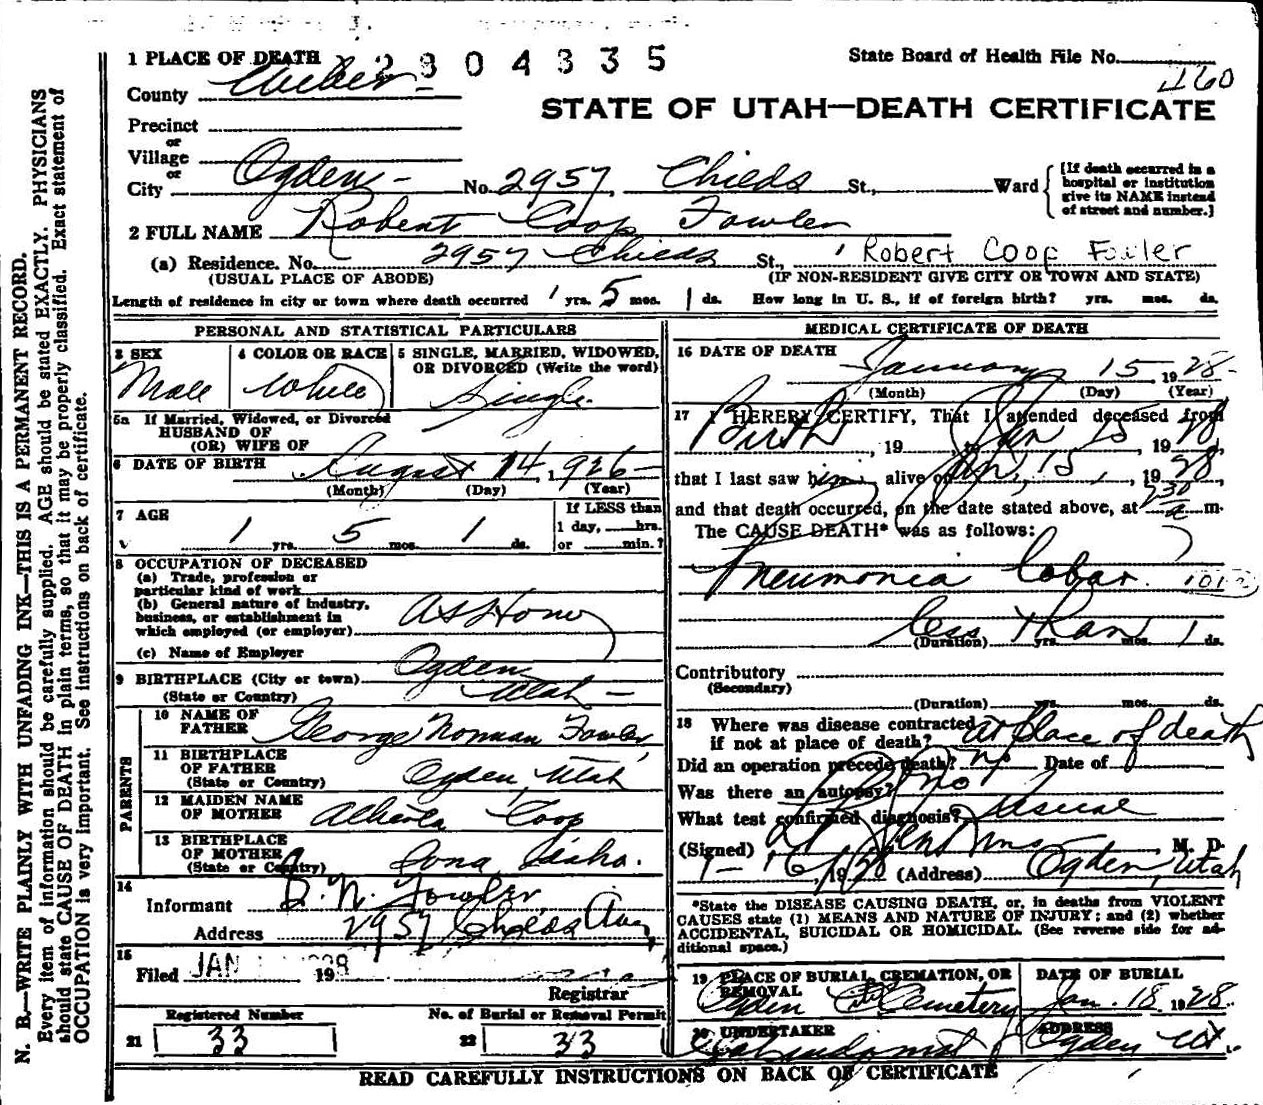 1 PLACE OF DEATH 2804335 State Board of Health File No. 460
County Weber
STATE OF UTAH—DEATH CERTIFICATE
Precinct
or
Village
or
City Ogden No. 2957 Childs St., Ward
[If death occurred in a hospital or institution give its NAME instead of street and number.]
2 FULL NAME Robert Coop Fowler
(a) Residence. No. 2957 Childs St., Robert Coop Fowler
(USUAL PLACE OF ABODE) (IF NON-RESIDENT GIVE CITY OR TOWN AND STATE)
Length of residence in city or town where death occurred 1 yrs. 5 mos. 1 ds. How long in U. S., if of foreign birth? yrs. mos. ds.
PERSONAL AND STATISTICAL PARTICULARS
3 SEX 4 COLOR OR RACE 5 SINGLE, MARRIED, WIDOWED,
OR DIVORCED (Write the word)
Male White Single
5a If Married, Widowed, or Divorced
HUSBAND OF
(OR) WIFE OF
6 DATE OF BIRTH August 14, 1926
(Month) (Day) (Year)
7 AGE If LESS than
1 day, hrs.
1 yrs. 5 mos. 1 ds. or min.?
8 OCCUPATION OF DECEASED
(a) Trade, profession or
particular kind of work
(b) General nature of industry,
business, or establishment in
which employed (or employer) At Home
(c) Name of Employer
9 BIRTHPLACE (City or town) Ogden
(State or Country) Utah
PARENTS
10 NAME OF
FATHER George Norman Fowler
11 BIRTHPLACE
OF FATHER
(State or Country) Ogden, Utah
12 MAIDEN NAME
OF MOTHER Coop
13 BIRTHPLACE
OF MOTHER
(State or Country) Iona, Idaho.
14
Informant G. N. Fowler
Address 2957 Childs Ave
15
Filed JAN 1928 19
Registrar
Registered Number No. of Burial or Removal Permit
21 33 22 33
MEDICAL CERTIFICATE OF DEATH
16 DATE OF DEATH
January 15, 1928
(Month) (Day) (Year)
17 I HEREBY CERTIFY, That I attended deceased from
Birth, 19 to Jan 15 1928
that I last saw him alive on Jan, 15, 1928,
and that death occurred, on the date stated above, at 2 30 a m.
The CAUSE DEATH* was as follows:
Pneumonia lobar.
less than 1 ds.
(Duration) yrs. mos. ds.
Contributory
(Secondary)
(Duration) yrs. mos. ds.
18 Where was disease contracted
if not at place of death? at place of death
Did an operation precede death? no Date of
Was there an autopsy? no
What test confirmed diagnosis? usual
(Signed) M. D.
1-16, 1928 (Address) Ogden, Utah
*State the DISEASE CAUSING DEATH, or, in deaths from VIOLENT
CAUSES state (1) MEANS AND NATURE OF INJURY; and (2) whether
ACCIDENTAL, SUICIDAL OR HOMICIDAL. (See reverse side for ad-
ditional space.)
19 PLACE OF BURIAL, CREMATION, OR REMOVAL DATE OF BURIAL
Ogden City Cemetery Jan. 18, 1928
20 UNDERTAKER ADDRESS
Lindquist Ogden Ut.
READ CAREFULLY INSTRUCTIONS ON BACK OF CERTIFICATE
N. B.—WRITE PLAINLY WITH UNFADING INK—THIS IS A PERMANENT RECORD.
Every item of information should be carefully supplied. AGE should be stated EXACTLY. PHYSICIANS
should state CAUSE OF DEATH in plain terms, so that it may be properly classified. Exact statement of
OCCUPATION is very important. See instructions on back of certificate.